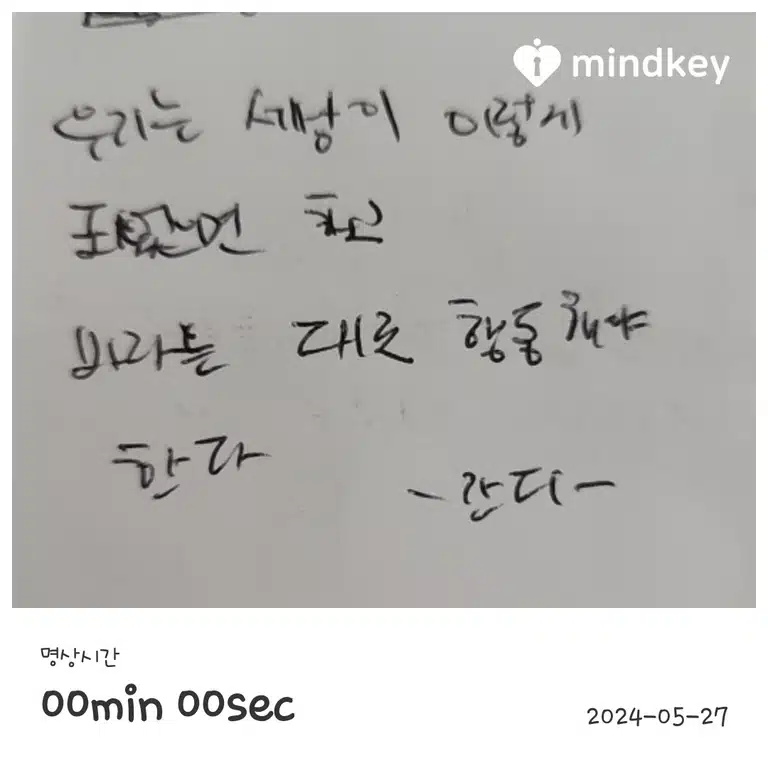 mindkey
우리는 세상이 이렇게
하고
바라는 대로 행동해야
한다
-간디-
명상시간
00min 00sec
2024-05-27